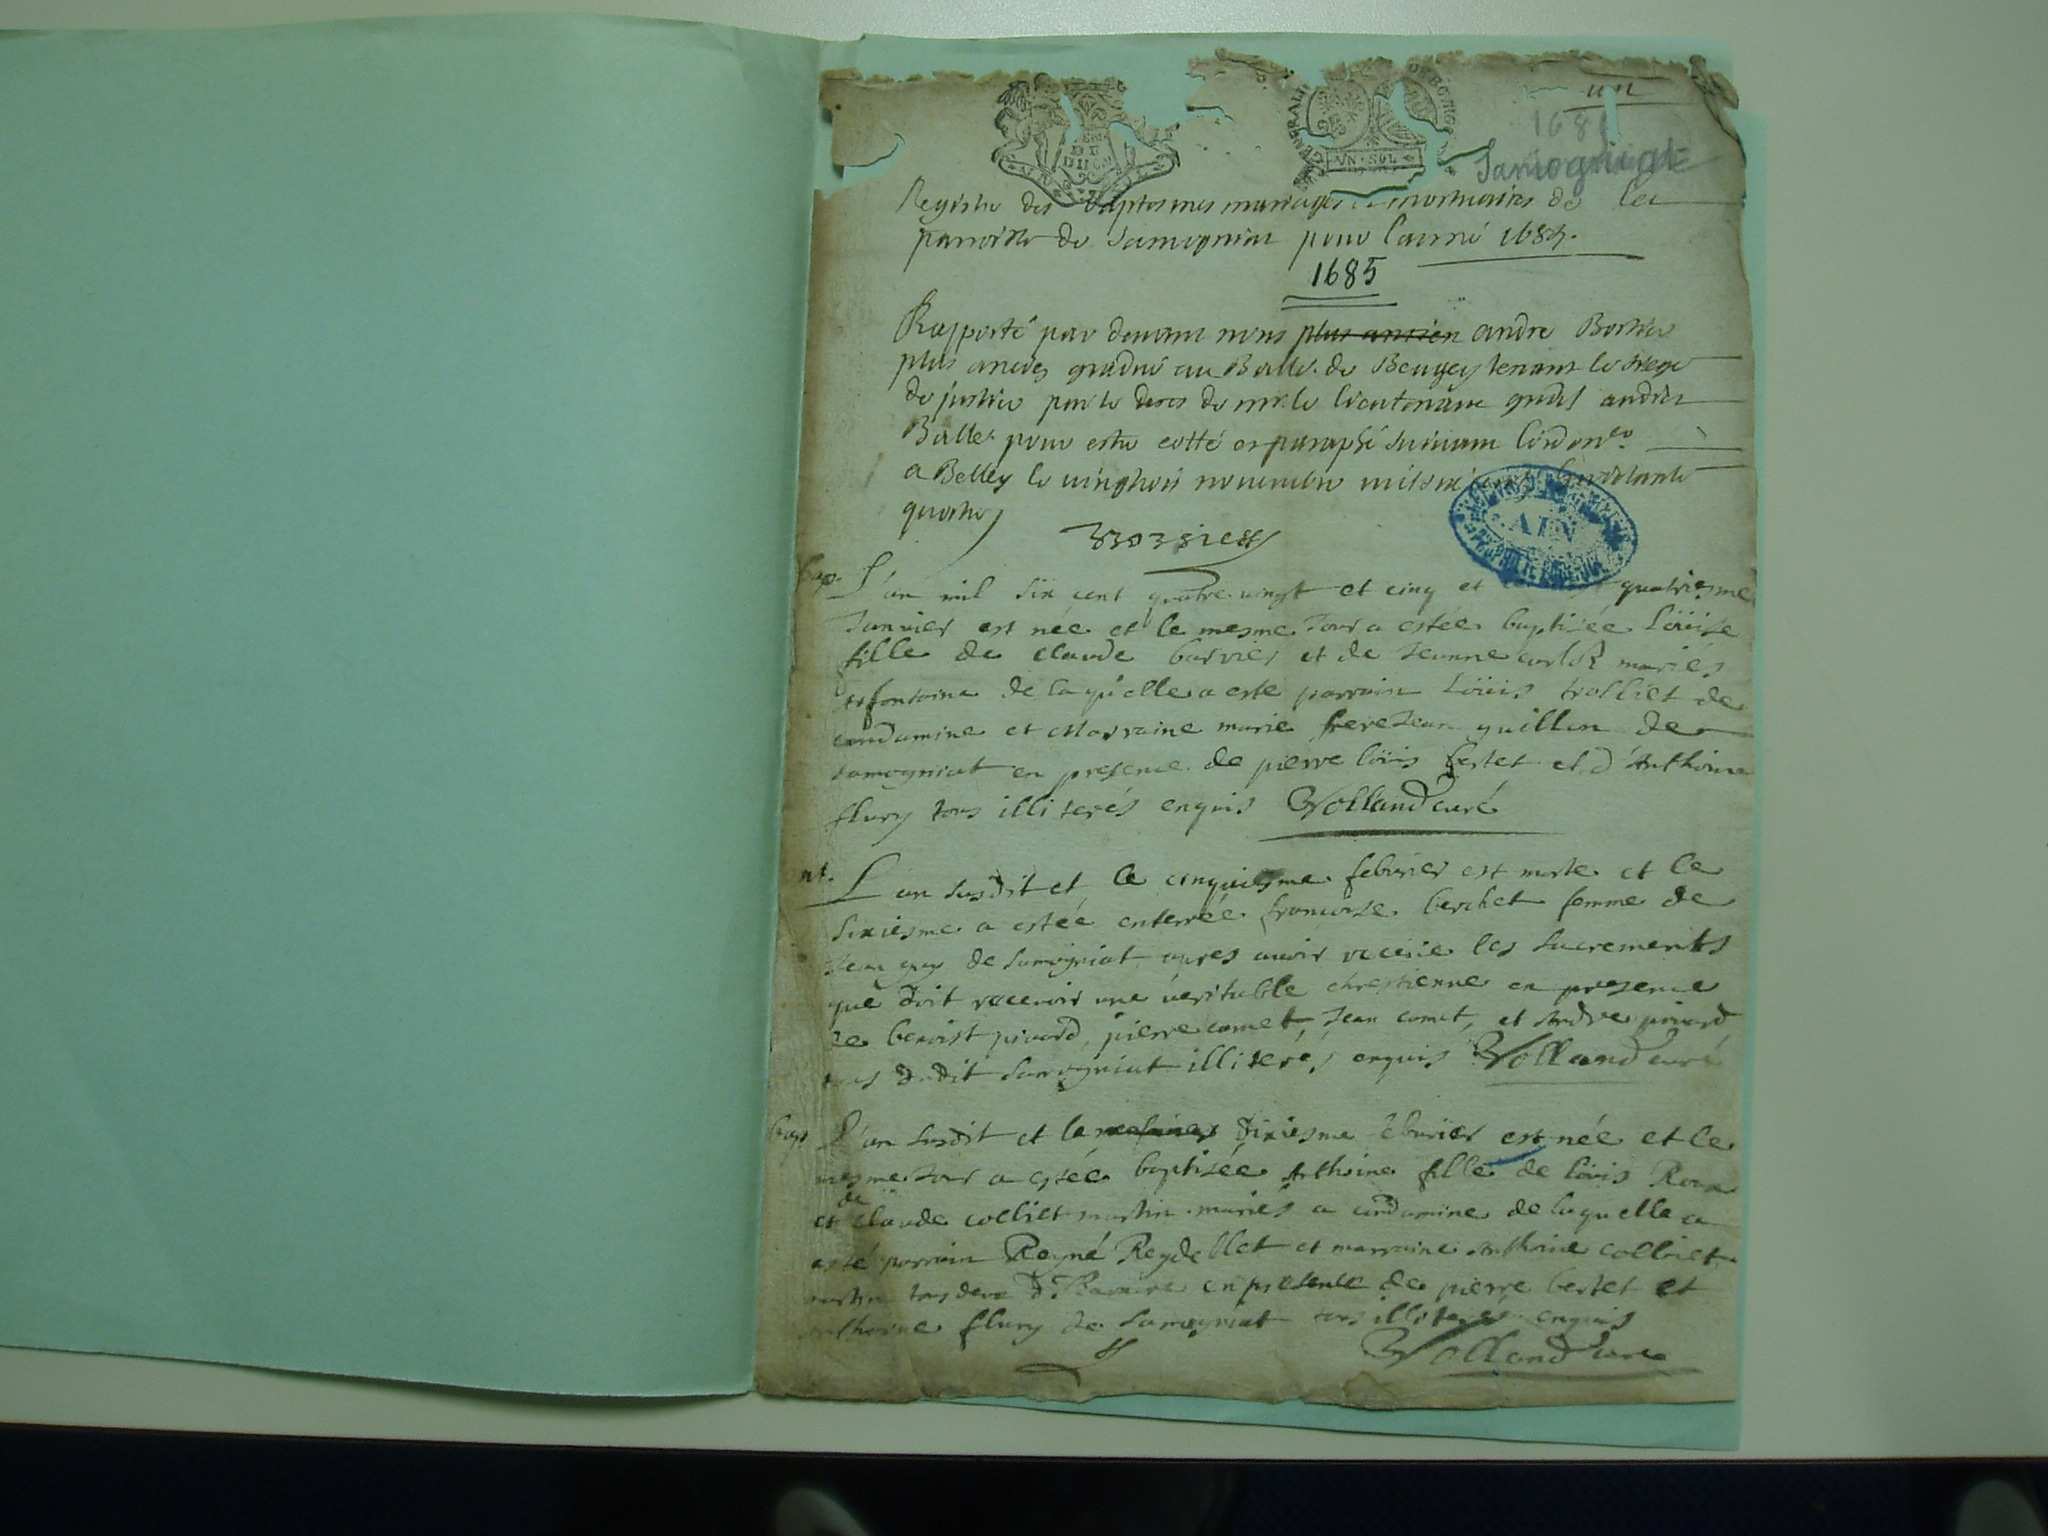 un
168
Samogniat
GENERALI
DE BOURG
VN·SOL
Registre des baptesmes mariages et mortuaires de la
parroisse de Samogniat pour l'année 1685.
1685
Rapporté par devant nous plus ancien andre
plus ancien gradué au Baille. de Beugey tenant le siege
de justice par le deces de mr. le lieutenant gnal audit
Baille. pour estre cotté et paraphé suivant l'ordonce.
a Belley le vingtrois novembre mil six
quatre
AIN
bap. L'an mil six cent quatre vingt et cinq et quatriesme
Januier est née et le mesme Jour a estée baptisée Loüise
fille de claude barrier et de Jeanne mariés
de laquelle a esté parrain Loüis trolliet de
condamine et marraine marie frereJean guillon de
samogniat en presence de pierre loüis bertet et d'Anthoine
flury tous illiterés enquis Volland curé
L'an susdit et le cinquiesme feburier est morte et le
sixiesme a estée enterrée françoise berchet femme de
Jean guy de samogniat apres auoir receüe les sacrements
que doit receuoir une véritable chrestienne en presence
de benoist piuard, pierre comet, Jean comet, et Andre piuard
tous dudit samogniat illiterés enquis Volland curé
bap L'an susdit et le dixiesme feburier est née et le
mesme Jour a estée baptisée Anthoine fille de loüis Roux
et de claude colliet martin mariés a condamine de laquelle a
esté parrain Reyné Reydellet et marraine Anthoine colliet
martin tous deux en presence de pierre bertet et
anthoine flury de samogniat tous illiterés enquis
Volland curé